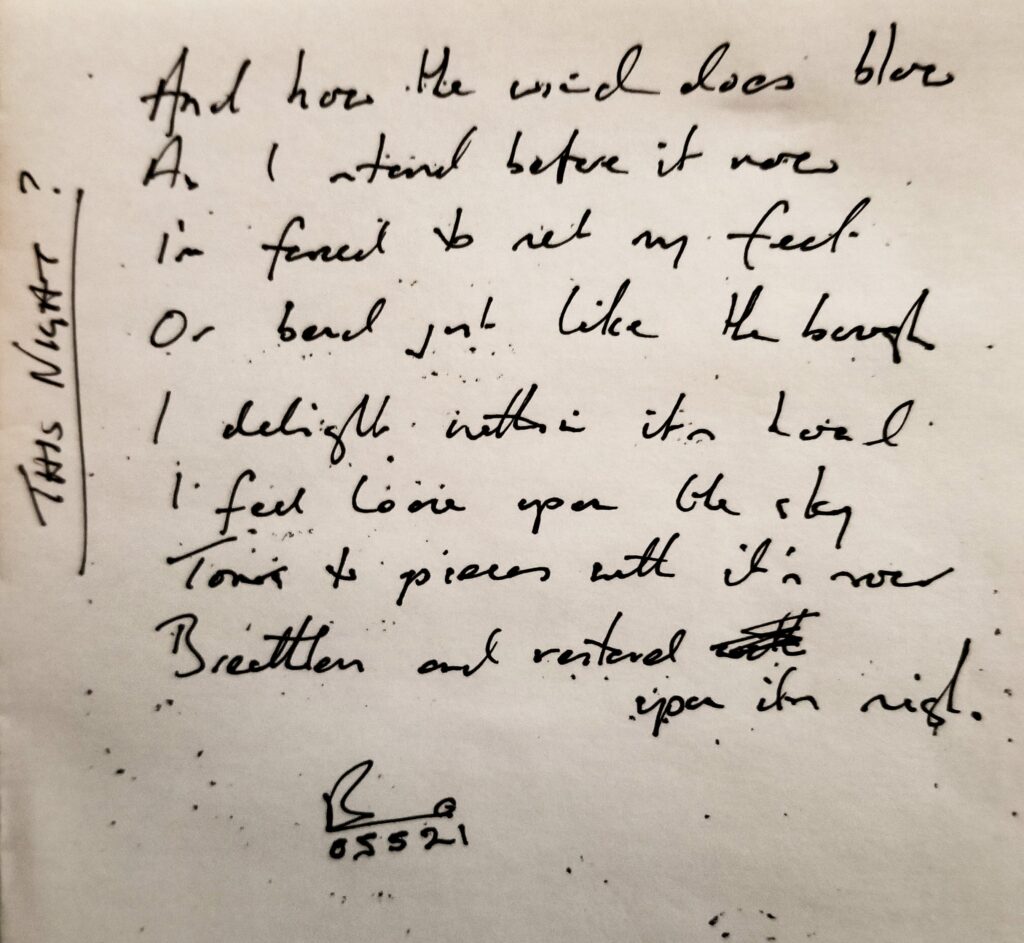 THIS NIGHT ?
And how the wind does blow
As I stand before it now
I'm forced to set my feet
Or bend just like the bough
I delight within its howl
I feel loose upon the sky
Torn to pieces with it's roar
Breathless and restored
upon its sigh.
05521